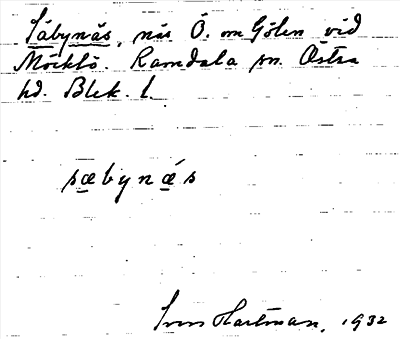 Säbynäs, näs Ö. om Gölen vid
Möcklö. Ramdala sn. Östra
hd. Blek. l.
sæbynǽs
Sven Hartman, 1932